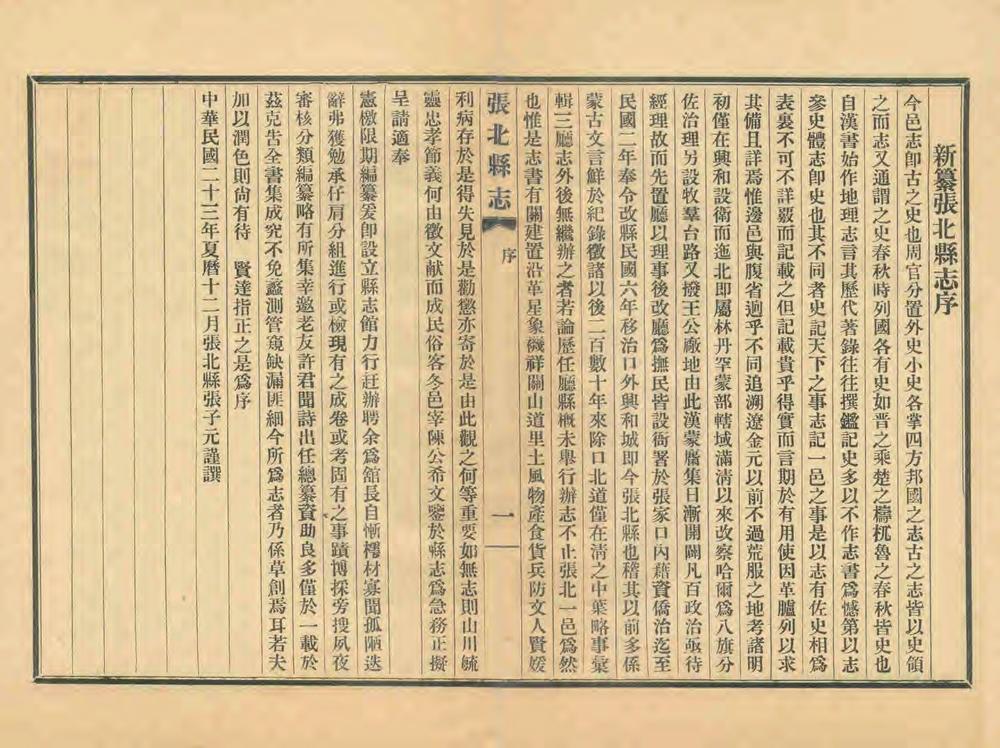 新纂張北縣志序
今邑志卽古之史也周官分置外史小史各掌四方邦國之志古之志皆以史領
之而志又通謂之史春秋時列國各有史如晋之乘楚之檮杌魯之春秋皆史也
自漢書始作地理志言其歷代著錄往往撰鑑記史多以不作志書爲憾第以志
參史體志卽史也其不同者史記天下之事志記一邑之事是以志有佐史相爲
表裏不可不詳覈而記載之但記載貴乎得實而言期於有用使因革臚列以求
其備且詳焉惟邊邑與腹省迥乎不同追溯遼金元以前不過荒服之地考諸明
初僅在興和設衛而迤北卽屬林丹罕蒙部轄域滿淸以來改察哈爾爲八旗分
佐治理另設牧羣台路又撥王公廠地由此漢蒙麕集日漸開闢凡百政治亟待
經理故而先置廳以理事後改廳爲撫民皆設衙署於張家口內藉資僑治迄至
民國二年奉令改縣民國六年移治口外興和城卽今張北縣也稽其以前多係
蒙古文言鮮於紀錄徵諸以後二百數十年來除口北道僅在清之中葉略事彙
輯三廳志外後無繼辦之者若論歷任廳縣概未舉行辦志不止張北一邑爲然
也惟是志書有關建置沿革星象禨祥關山道里土風物產食貨兵防文人賢媛
張北縣志 序 一
利病存於是得失見於是勸懲亦寄於是由此觀之何等重要如無志則山川毓
靈忠孝節義何由徵文献而成民俗客冬邑宰陳公希文鑒於縣志爲急務正擬
呈請適奉
憲檄限期編纂爰卽設立縣志館力行赶辦聘余爲舘長自慚樗材寡聞孤陋迭
辭弗獲勉承仔肩分組進行或檢現有之成卷或考固有之事蹟博採旁搜夙夜
審核分類編纂略有所集幸邀老友許君聞詩出任總纂資助良多僅於一載於
茲克吿全書集成究不免蠡測管窺缺漏匪細今所爲志者乃係草創焉耳若夫
加以潤色則尙有待 賢達指正之是爲序
中華民國二十三年夏曆十二月張北縣張子元謹譔